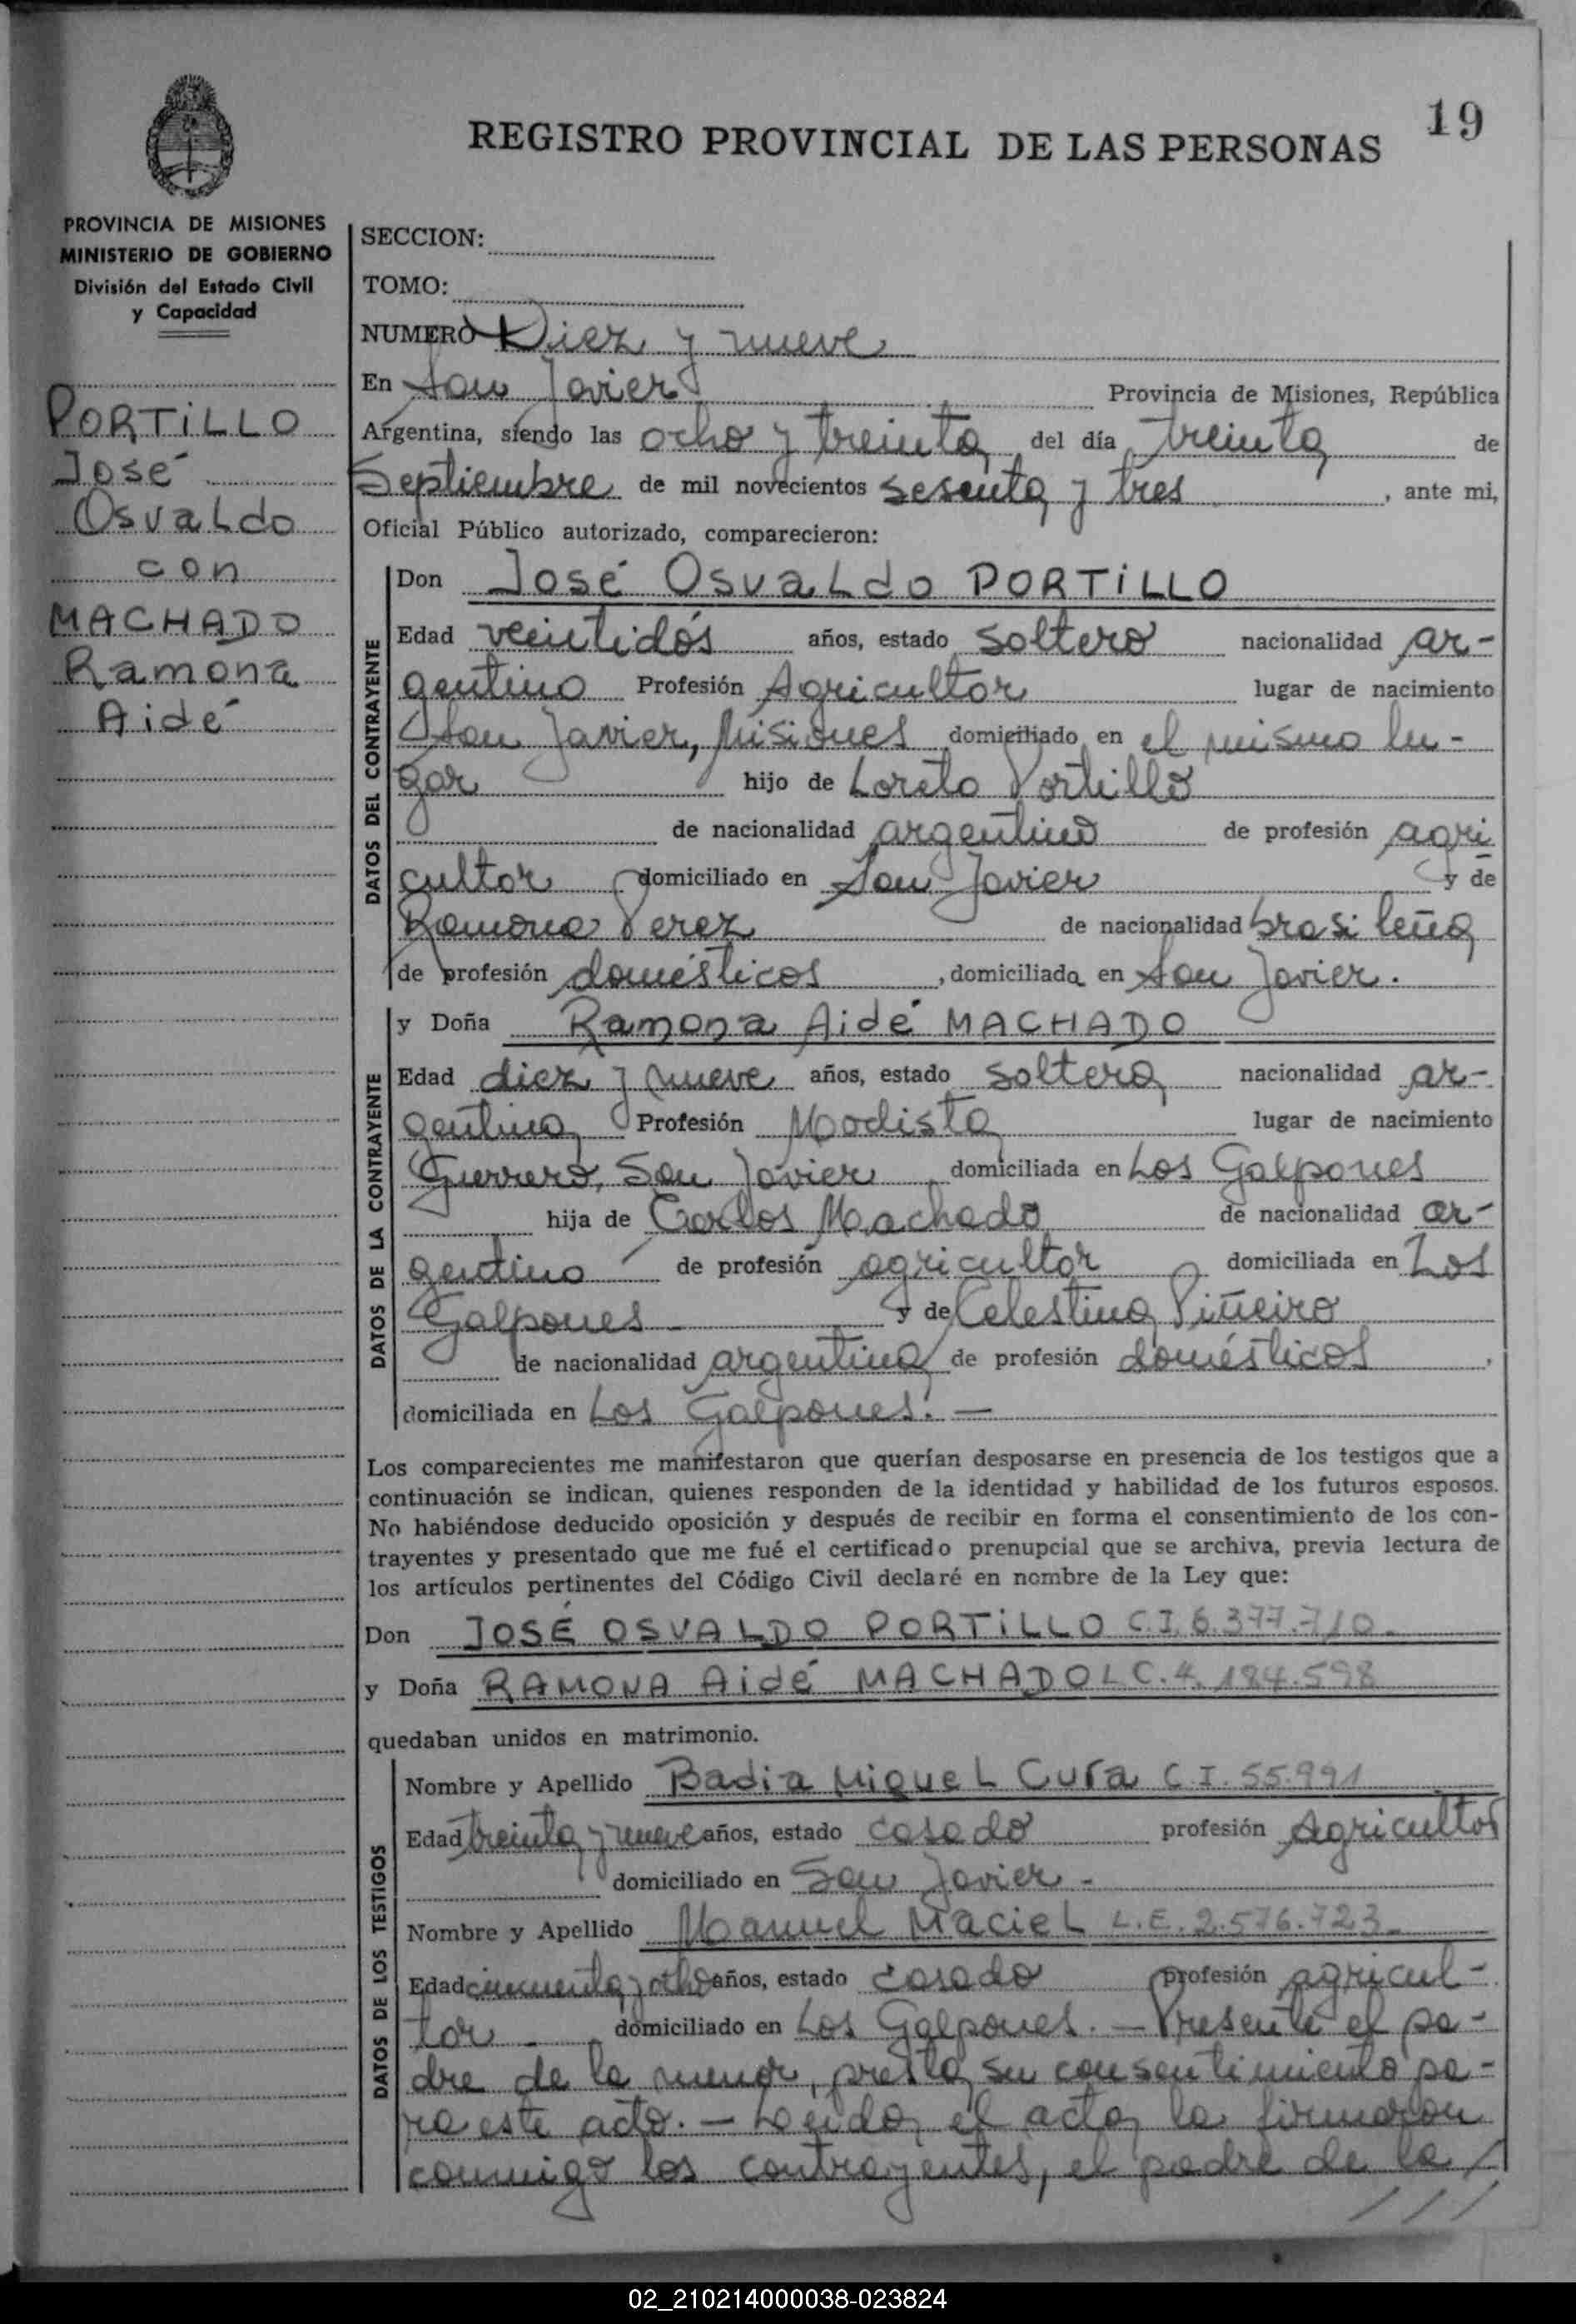 19
REGISTRO PROVINCIAL DE LAS PERSONAS
PROVINCIA DE MISIONES
MINISTERIO DE GOBIERNO
División del Estado Civil
y Capacidad
PORTILLO
José
Osvaldo
con
MACHADO
Ramona
Aidé
SECCION:
TOMO:
NUMERO Diez y nueve
En San Javier Provincia de Misiones, República
Argentina, siendo las ocho y treinta del día treinta de
Septiembre de mil novecientos sesenta y tres, ante mi,
Oficial Público autorizado, comparecieron:
DATOS DEL CONTRAYENTE
Don José Osvaldo PORTILLO
Edad veintidós años, estado soltero nacionalidad ar-
gentino Profesión Agricultor lugar de nacimiento
San Javier, Misiones domiciliado en el mismo lu-
gar hijo de Loreto Portillo
de nacionalidad argentino de profesión agri
cultor domiciliado en San Javier y de
Ramona Perez de nacionalidad brasileña
de profesión domésticos, domiciliada en San Javier.
DATOS DE LA CONTRAYENTE
y Doña Ramona Aidé MACHADO
Edad diez y nueve años, estado soltera nacionalidad ar-
gentina Profesión Modista lugar de nacimiento
Guerrero, San Javier domiciliada en Los Galpones
hija de Carlos Machado de nacionalidad ar-
gentino de profesión agricultor domiciliada en Los
Galpones y de Celestina Piñeiro
de nacionalidad argentina de profesión domésticos,
domiciliada en Los Galpones. —
Los comparecientes me manifestaron que querían desposarse en presencia de los testigos que a
continuación se indican, quienes responden de la identidad y habilidad de los futuros esposos.
No habiéndose deducido oposición y después de recibir en forma el consentimiento de los con-
trayentes y presentado que me fué el certificado prenupcial que se archiva, previa lectura de
los artículos pertinentes del Código Civil declaré en nombre de la Ley que:
Don JOSÉ OSVALDO PORTILLO C.I. 6.377.710.
y Doña RAMONA Aidé MACHADO L C. 4.184.598
quedaban unidos en matrimonio.
DATOS DE LOS TESTIGOS
Nombre y Apellido Badia Miguel Cura C.I. 55.991
Edad treinta y nueve años, estado casado profesión Agricultor
domiciliado en San Javier -
Nombre y Apellido Manuel Maciel L.E. 2.576.723.
Edad cincuenta y ocho años, estado casado profesión agricul-
tor domiciliado en Los Galpones. — Presente el pa-
dre de la menor, presta su consentimiento pa-
ra este acto. — Leida el acta, la firmaron
conmigo los contrayentes, el padre de la /
///
02_210214000038-023824